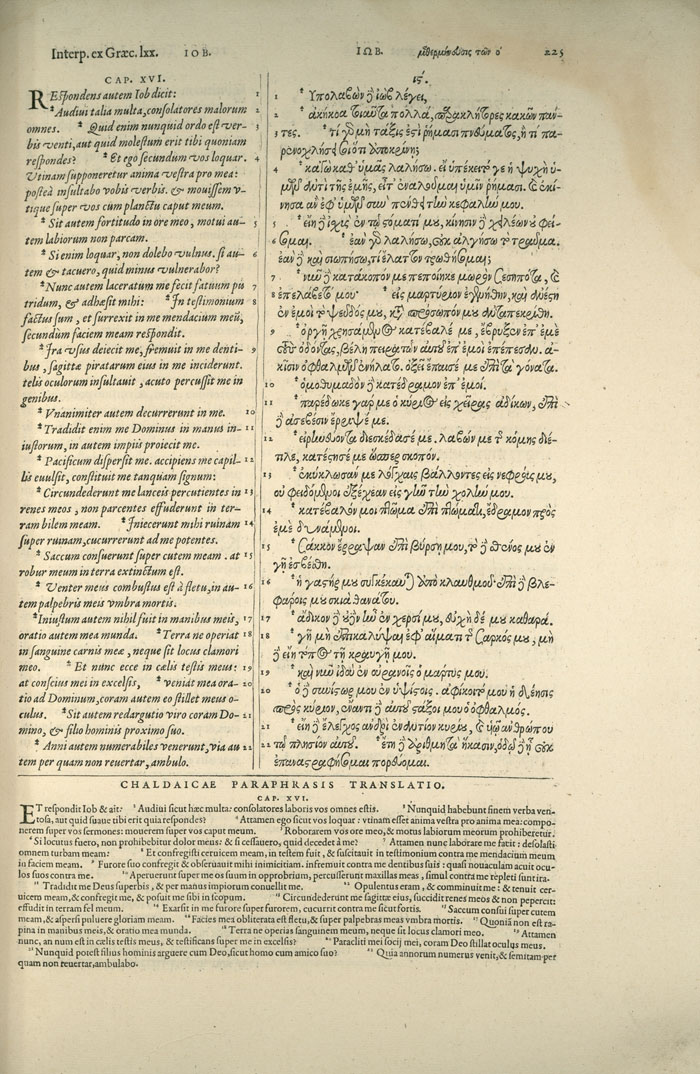 Interp. ex Græc. lxx. IOB.
CAP. XVI.
REspondens autem Iob dicit: 1
*Audiui talia multa, consolatores malorum 2
omnes. *Quid enim nunquid ordo est ver- 3
bis venti, aut quid molestum erit tibi quoniam
respondes? *Et ego secundum vos loquar. 4
Vtinam supponeretur anima vestra pro mea:
posteà insultabo vobis verbis. & mouissem v-
tique super vos cum planctu caput meum.
*Sit autem fortitudo in ore meo, motui au- 5
tem labiorum non parcam.
*Si enim loquar, non dolebo vulnus. si au- 6
tem & tacuero, quid minus vulnerabor?
*Nunc autem laceratum me fecit fatuum pu 7
tridum, & adhæsit mihi: *In testimonium 8
factus sum, et surrexit in me mendacium meũ,
secundùm faciem meam respondit.
*Ira vsus deiecit me, fremuit in me denti- 9
bus, sagittæ piratarum eius in me inciderunt.
telis oculorum insultauit, acuto percussit me in
genibus.
*Vnanimiter autem decurrerunt in me. 10
*Tradidit enim me Dominus in manus in- 11
iustorum, in autem impiis proiecit me.
*Pacificum dispersit me. accipiens me capil- 12
lis euulsit, constituit me tanquam signum:
*Circundederunt me lanceis percutientes in 13
renes meos, non parcentes effuderunt in ter-
ram bilem meam. *Iniecerunt mihi ruinam 14
super ruinam, cucurrerunt ad me potentes.
*Saccum consuerunt super cutem meam. at 15
robur meum in terra extinctum est.
*Venter meus combustus est à fletu, in au- 16
tem palpebris meis vmbra mortis.
*Iniustum autem nihil fuit in manibus meis, 17
oratio autem mea munda. *Terra ne operiat 18
in sanguine carnis meæ, neque sit locus clamori
meo. *Et nunc ecce in cælis testis meus: 19
at conscius mei in excelsis, *veniat mea ora- 20
tio ad Dominum, coram autem eo stillet meus o-
culus. *Sit autem redargutio viro coram Do- 21
mino, & filio hominis proximo suo.
*Anni autem numerabiles venerunt, via au 22
tem per quam non reuertar, ambulo.
ΙΩΒ. μεθερμήνευσις τῶν ο΄ 225
ις΄.
1 *Υπολαβὼν δὲ ἰὼβ λέγει,
2 *ἀκήκοα τοιαῦτα πολλά, παρακλήτορες κακῶν πάν-
3 τες. *τί γὰρ μὴ τάξις ἐστὶ ῥήμασι πνεύματος, ἢ τί πα-
ρενοχλήσει σοι ὅτι ἀποκρίνῃ;
4 *κἀγὼ καθ' ὑμᾶς λαλήσω. εἰ ὑπέκειτό γε ἡ ψυχὴ ὑ-
μῶν ἀντὶ τῆς ἐμῆς, εἶτ' ἐναλοῦμαι ὑμῖν ῥήμασι. καὶ ἐκί-
νησα ἂν ἐφ' ὑμῶν σὺν πένθει τὴν κεφαλήν μου.
5 *εἴη δὲ ἰσχὺς ἐν τῷ στόματί μου, κίνησιν δὲ χειλέων οὐ φεί-
σομαι.
6 *ἐὰν γὰρ λαλήσω, οὐκ ἀλγήσω τὸ τραῦμα.
ἐὰν δὲ καὶ σιωπήσω, τί ἔλαττον τρωθήσομαι;
7 *νῦν δὲ κατάκοπόν με πεποίηκε μωρὸν σεσηπότα, καὶ
8 ἐπελάβετό μου· *εἰς μαρτύριον ἐγενήθην, καὶ ἀνέστη
ἐν ἐμοὶ τὸ ψεῦδός μου, κατὰ πρόσωπόν μου ἀνταπεκρίθη.
9 *ὀργῇ χρησάμενος κατέβαλέ με, ἔβρυξεν ἐπ' ἐμὲ
τοὺς ὀδόντας, βέλη πειρατῶν αὐτοῦ ἐπ' ἐμοὶ ἐπέπεσεν. ἀ-
κίσιν ὀφθαλμῶν ἐνήλατο. ὀξεῖ ἔπαισέ με ἐπὶ τὰ γόνατα.
10 *ὁμοθυμαδὸν δὲ κατέδραμον ἐπ' ἐμοί.
11 *παρέδωκε γάρ με ὁ κύριος εἰς χεῖρας ἀδίκων, ἐπὶ
δὲ ἀσεβέσιν ἔρριψέ με.
12 *εἰρηνεύοντα διεσκέδασέ με. λαβών με τῆς κόμης διέ-
τιλε, κατέστησέ με ὥσπερ σκοπόν.
13 *ἐκύκλωσάν με λόγχαις βάλλοντες εἰς νεφρούς μου,
οὐ φειδόμενοι ἐξέχεαν εἰς γῆν τὴν χολήν μου.
14 *κατέβαλόν μοι πτῶμα ἐπὶ πτώματι, ἔδραμον πρὸς
ἐμὲ δυνάμενοι.
15 *σάκκον ἔρραψαν ἐπὶ βύρσῃ μου, τὸ δὲ σθένος μου ἐν
γῇ ἐσβέσθη.
16 *ἡ γαστήρ μου συγκέκαυται ἀπὸ κλαυθμοῦ· ἐπὶ δὲ βλε-
φάροις μου σκιὰ θανάτου.
17 *ἄδικον δὲ οὐδὲν ἦν ἐν χερσί μου, εὐχὴ δέ μου καθαρά.
18 *γῆ μὴ ἐπικαλύψαι ἐφ' αἵματι τῆς σαρκός μου, μὴ
δὲ εἴη τόπος τῇ κραυγῇ μου.
19 *καὶ νῦν ἰδοὺ ἐν οὐρανοῖς ὁ μάρτυς μου.
20 *ὁ δὲ συνίστωρ μου ἐν ὑψίστοις. ἀφίκοιτό μου ἡ δέησις
πρὸς κύριον, ἔναντι δὲ αὐτοῦ στάζοι μου ὁ ὀφθαλμός.
21 *εἴη δὲ ἔλεγχος ἀνδρὶ ἐνώπιον κυρίου, καὶ υἱῷ ἀνθρώπου
22 τῷ πλησίον αὐτοῦ. *ἔτη δὲ ἀριθμητὰ ἥκασιν, ὁδῷ δὲ ᾗ οὐκ
ἐπαναστραφήσομαι πορεύσομαι.
CHALDAICAE PARAPHRASIS TRANSLATIO.
CAP. XVI.
ET respondit Iob & ait: ²Audiui sicut hæc multa: consolatores laboris vos omnes estis. ³Nunquid habebunt finem verba ven-
tosa, aut quid suaue tibi erit quia respondes? ⁴Attamen ego sicut vos loquar: vtinam esset anima vestra pro anima mea: compo-
nerem super vos sermones: mouerem super vos caput meum. ⁵Roborarem vos ore meo, & motus labiorum meorum prohiberetur.
⁶Si locutus fuero, non prohibebitur dolor meus: & si cessauero, quid decedet à me? ⁷Attamen nunc laborare me fatit: desolasti
omnem turbam meam: ⁸Et confregisti ceruicem meam, in testem fuit, & suscitauit in testimonium contra me mendacium meum
in faciem meam. ⁹Furore suo confregit & obseruauit mihi inimicitiam. infremuit contra me dentibus suis: quasi nouaculam acuit ocu-
los suos contra me. ¹⁰Aperuerunt super me os suum in opprobrium, percusserunt maxillas meas, simul contra me repleti sunt ira.
¹¹Tradidit me Deus superbis, & per manus impiorum conuellit me. ¹²Opulentus eram, & comminuit me: & tenuit cer-
uicem meam, & confregit me, & posuit me sibi in scopum. ¹³Circundederunt me sagittæ eius, succidit renes meos & non pepercit:
effudit in terram fel meum. ¹⁴Exarsit in me furore super furorem, cucurrit contra me sicut fortis. ¹⁵Saccum consui super cutem
meam, & aspersi puluere gloriam meam. ¹⁶Facies mea obliterata est fletu, & super palpebras meas vmbra mortis. ¹⁷Quoniã non est ra-
pina in manibus meis, & oratio mea munda. ¹⁸Terra ne operias sanguinem meum, neque sit locus clamori meo. ¹⁹Attamen
nunc, an num est in cælis testis meus, & testificans super me in excelsis? ²⁰Paracliti mei socij mei, coram Deo stillat oculus meus.
²¹Nunquid potest filius hominis arguere cum Deo, sicut homo cum amico suo? ²²Quia annorum numerus venit, & semitam per
quam non reuertar, ambulabo.